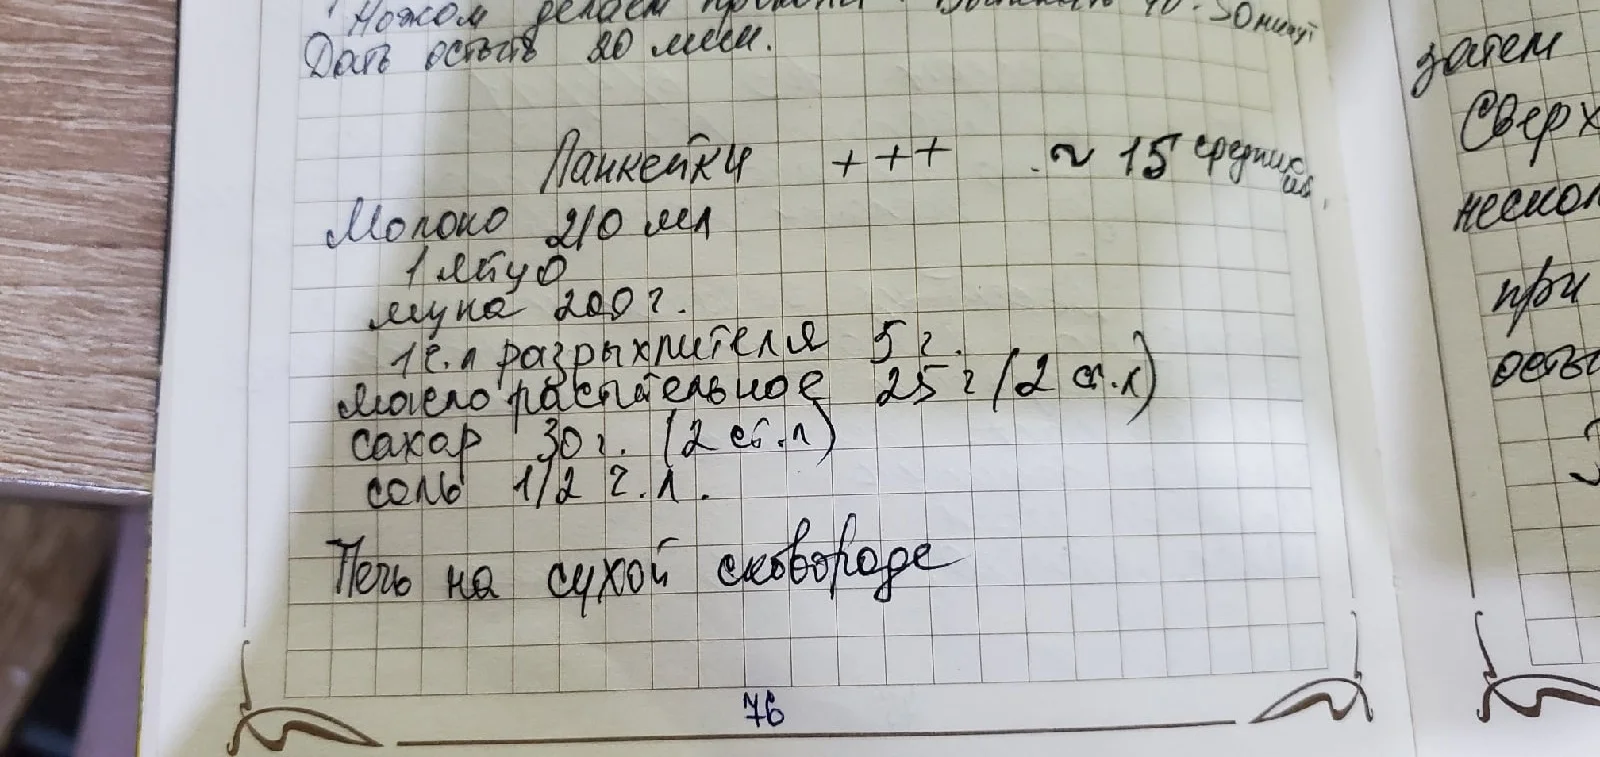 Ножом делаем проколы. Выпекать 40-50 минут
Дать остыть 20 мин.
Панкейки +++ ~ 15 средних
шт.
Молоко 210 мл
1 яйцо
мука 200 г.
1 с.л разрыхлителя 5 г.
масло растительное 25 г (2 ст.л)
сахар 30 г. (2 ст.л)
соль 1/2 ч.л.
Печь на сухой сковороде
76
затем
Сверх
нескол
при
осты